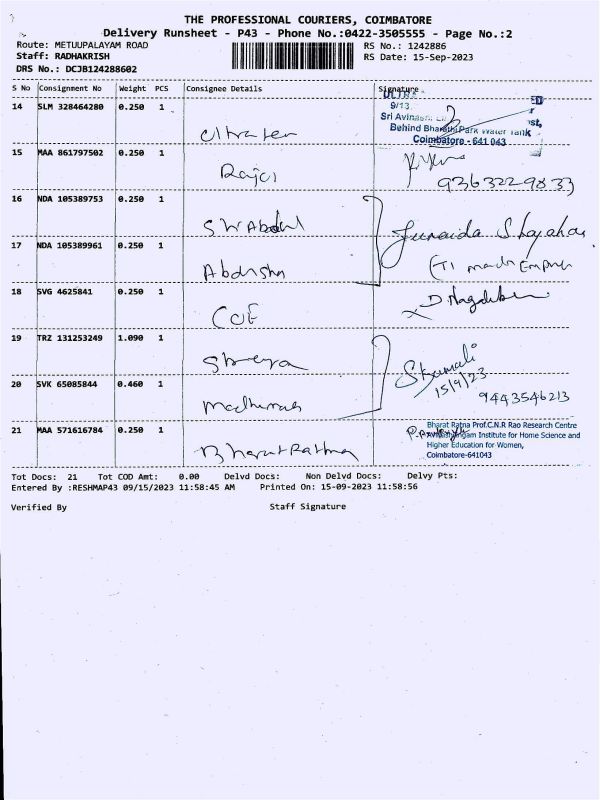 THE PROFESSIONAL COURIERS, COIMBATORE
Delivery Runsheet - P43 - Phone No.:0422-3505555 - Page No.:2
Route: METUUPALAYAM ROAD
RS No.: 1242886
Staff: RADHAKRISH
RS Date: 15-Sep-2023
DRS No.: DCJB124288602
S No Consignment No Weight PCS Consignee Details Signature
14 SLM 328464280 0.250 1
9/13
Sri Avinash
Behind Bharathi Park Water Tank
Coimbatore - 641 043
15 MAA 861797502 0.250 1
Raja
9363229833
16 NDA 105389753 0.250 1
S W Abdul
Junaida Shajahan
17 NDA 105389961 0.250 1
18 SVG 4625841 0.250 1
COE
19 TRZ 131253249 1.090 1
Shreya
15/9/23
20 SVK 65085844 0.460 1
9443546213
21 MAA 571616784 0.250 1
Bharat Ratna
Bharat Ratna Prof.C.N.R Rao Research Centre
Avinashilingam Institute for Home Science and
Higher Education for Women,
Coimbatore-641043
Tot Docs: 21 Tot COD Amt: 0.00 Delvd Docs: Non Delvd Docs: Delvy Pts:
Entered By :RESHMAP43 09/15/2023 11:58:45 AM Printed On: 15-09-2023 11:58:56
Verified By Staff Signature